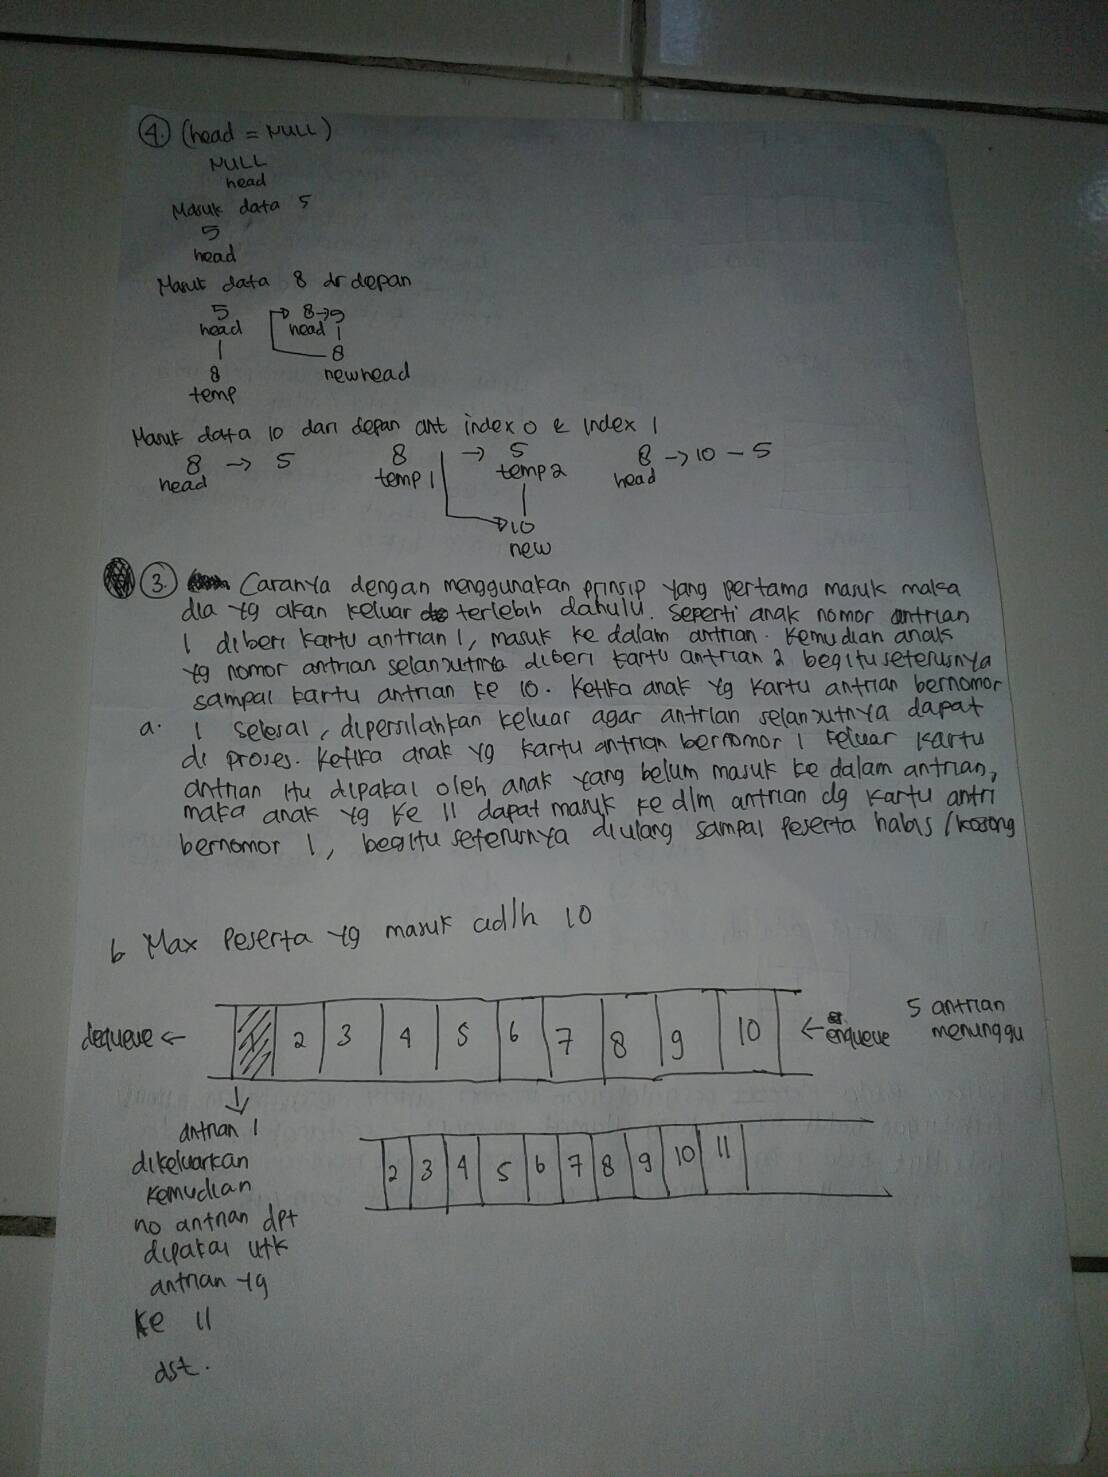 4. (head = NULL)
NULL
head
Masuk data 5
5
head
Masuk data 8 dr depan
5 8→5
head head
8 8
temp newhead
Masuk data 10 dari depan ant index 0 & index 1
8 → 5 8 → 5 8 → 10 - 5
head temp 1 temp 2 head
10
new
3. Caranya dengan menggunakan prinsip yang pertama masuk maka
dia yg akan keluar terlebih dahulu. Seperti anak nomor antrian
1 diberi kartu antrian 1, masuk ke dalam antrian. Kemudian anak
yg nomor antrian selanjutnya diberi kartu antrian 2 begitu seterusnya
sampai kartu antrian ke 10. Ketika anak yg kartu antrian bernomor
a. 1 selesai, dipersilahkan keluar agar antrian selanjutnya dapat
di proses. Ketika anak yg kartu antrian bernomor 1 keluar kartu
antrian itu dipakai oleh anak yang belum masuk ke dalam antrian,
maka anak yg ke 11 dapat masuk ke dlm antrian dg kartu antri
bernomor 1, begitu seterusnya diulang sampai peserta habis / kosong
b Max peserta yg masuk adlh 10
dequeue ← 2 3 4 5 6 7 8 9 10 ← enqueue 5 antrian
menunggu
antrian 1
dikeluarkan
kemudian
no antrian dpt
dipakai utk
antrian yg
ke 11
dst.
2 3 4 5 6 7 8 9 10 11